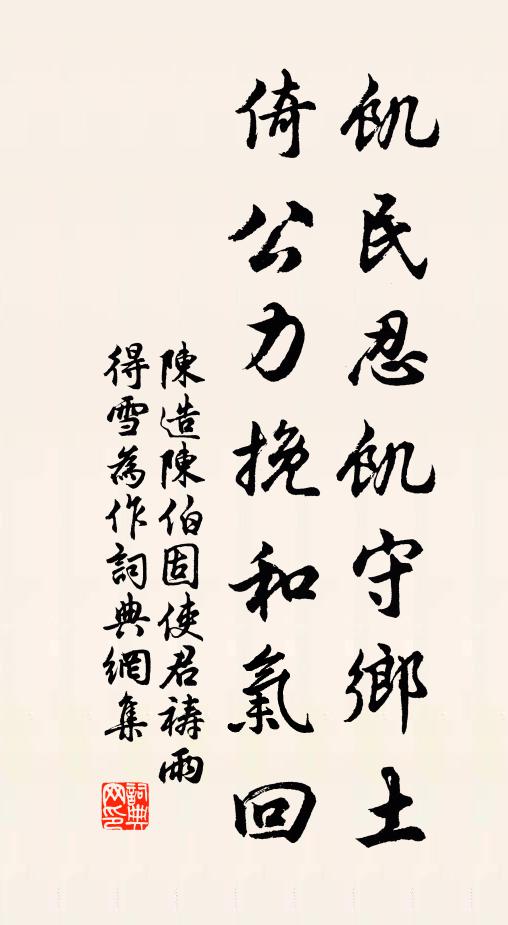 飢民忍飢守鄉土
倚公力挽和氣回
陳造陳伯固使君禱雨
得雪為作詞典網集
詞典网印